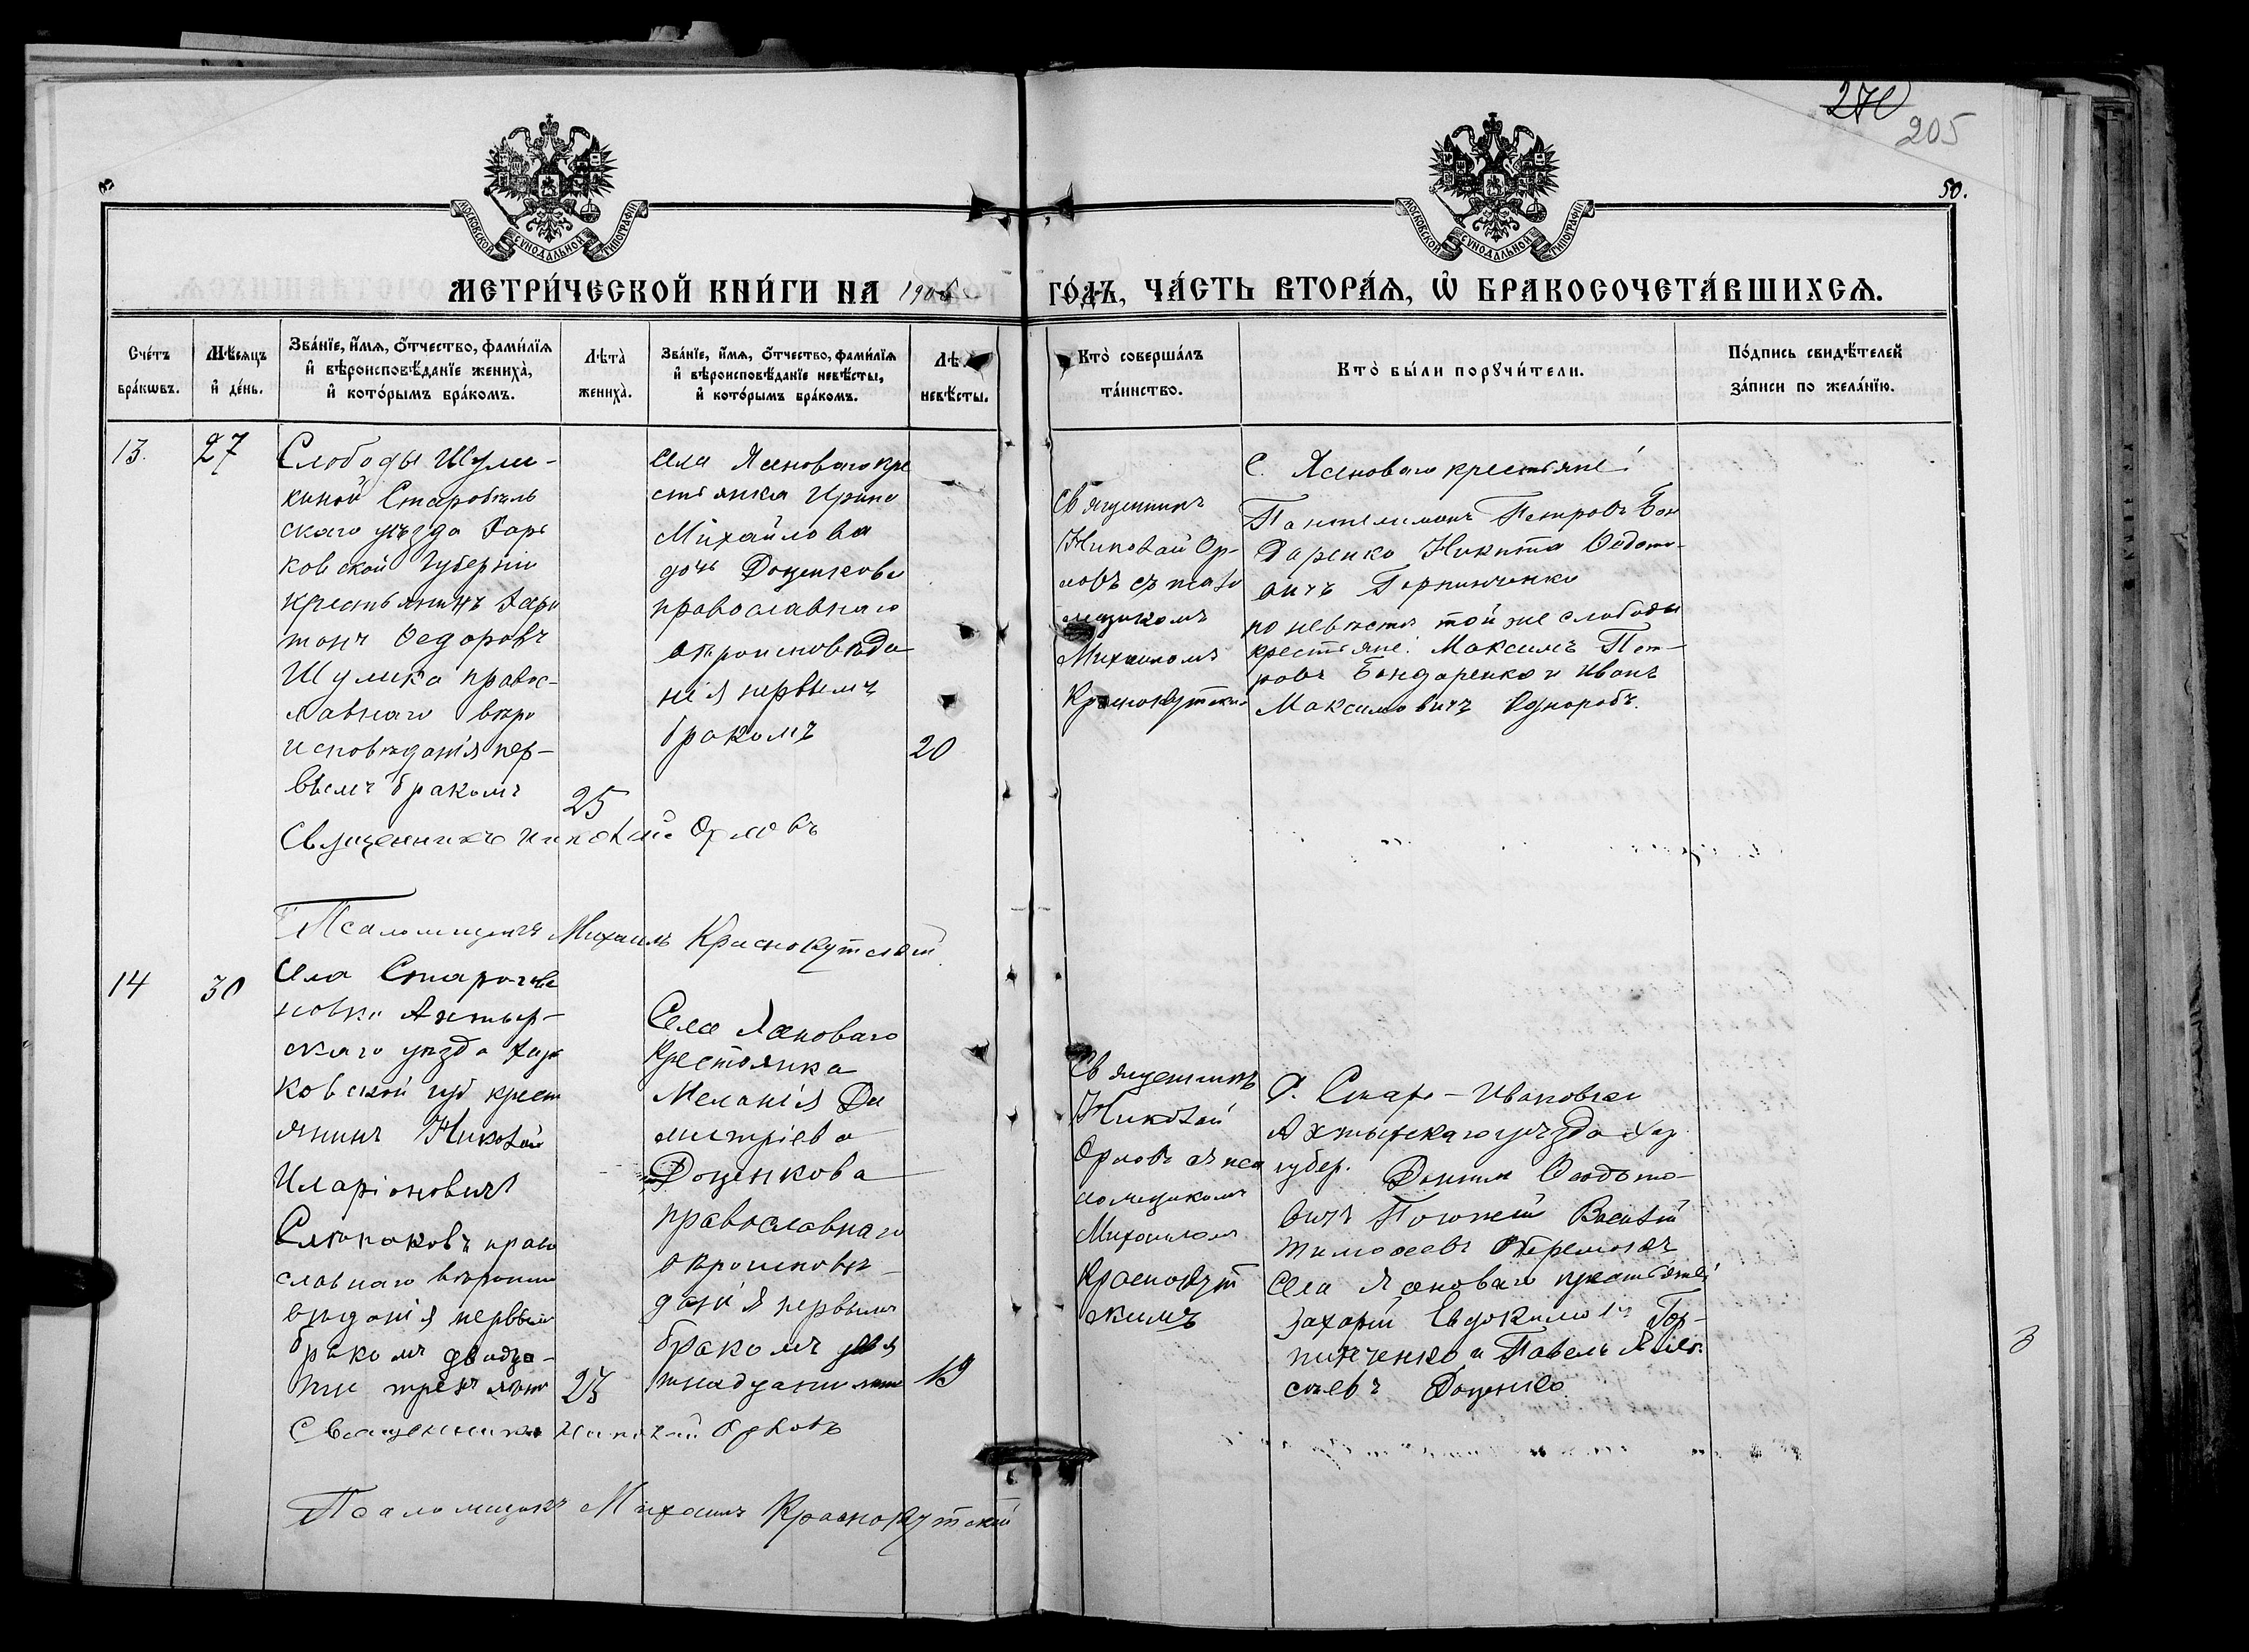 270
205
50.
МОСКОВСКОЙ СѴНОДАЛЬНОЙ ТИПОГРАФІИ
МОСКОВСКОЙ СѴНОДАЛЬНОЙ ТИПОГРАФІИ
МЕТРИ́ЧЕСКОЙ КНИ́ГИ НА 190
ГО́ДЪ, ЧА́СТЬ ВТОРА́Ѧ, Ѡ҆ БРАКОСОЧЕТА́ВШИХСѦ.
Сче́тъ
бра́кѡвъ.
Мѣ́сяцъ
и҆ де́нь.
Зва́нїе, и҆́мѧ, ѻ҆́тчество, фами́лїѧ
и҆ вѣроисповѣ́данїе жениха̀,
и҆ кото́рымъ бра́комъ.
Лѣта̀
жениха̀.
Зва́нїе, и҆́мѧ, ѻ҆́тчество, фами́лїѧ
и҆ вѣроисповѣ́данїе невѣ́сты,
и҆ кото́рымъ бра́комъ.
Лѣ
невѣ́сты.
Кто̀ соверша́лъ
та́инство.
Кто̀ бы́ли порꙋчи́тели.
По́дпись свидѣ́телей
за́писи по жела́нїю.
13.
27
Слободы Шули-
киной Старобѣль
скаго уѣзда Харь
ковской Губерніи
крестьянинъ Хари
тонъ Ѳедоровъ
Шулика правос-
лавнаго вѣро
исповѣданія пер-
вымъ бракомъ
25
Села Ясеноваго кре
стьянка Ирина
Михайлова
дочь Доценкова
православнаго
вѣроисповѣда
нія первымъ
бракомъ
20
Священникъ
Николай Ор-
ловъ съ псало
мщикомъ
Михаиломъ
Краснокутскимъ
С. Ясеноваго крестьяне:
Пантелимонъ Петровъ Бон
даренко Никита Ѳедото-
вичъ Горпинченко
по невѣстѣ той же слободы
крестьяне: Максимъ Пет-
ровъ Бондаренко и Иванъ
Максимовичъ
Священникъ Николай Орловъ
Псаломщикъ Михаилъ Краснокутскій
14
30
Села Староива
новки Ахтыр-
скаго уѣзда Харь
ковской губ крест
янинъ Николай
Иларіоновичъ
православнаго вѣроиспо
вѣданія первымъ
бракомъ двадца-
ти трехъ лѣтъ
23
Села Ясеноваго
Крестьянка
Меланія Ди
митріева
Доценкова
православнаго
вѣроисповѣ
данія первымъ
бракомъ девя
тнадцати лѣтъ
19
Священникъ
Николай
Орловъ съ пса
ломщикомъ
Михаиломъ
Краснокут
скимъ
С. Старо-Ивановки
Ахтырскаго уѣзда Хар
губер. Ѳеодото-
вичъ Василій
Тимоѳеевъ
Села Ясеноваго крестьяне:
Захарій Евдокимовъ Гор-
пинченко и Павелъ Алек
сѣевъ Доценко
Священникъ Николай Орловъ
Псаломщикъ Михаилъ Краснокутскій
3